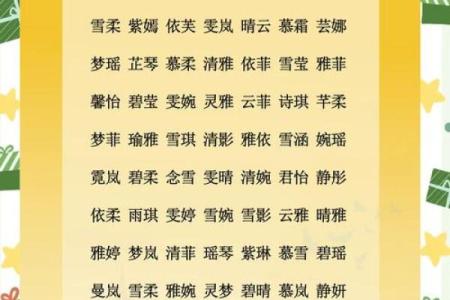 雪柔 紫嫣 依芙 雯岚 晴云 慕霜 芸娜
梦瑶 芷琴 慕柔 清雅 依菲 雪莹 雅菲
馨怡 碧莹 雯婉 灵雅 云菲 诗琪 芊柔
梦菲 瑜雅 雪琪 清影 雅依 雪涵 婉瑶
霓岚 碧柔 念雪 雯晴 清婉 君怡 静彤
依柔 雨琪 雯婷 雪婉 雪影 云雅 晴雅
雅婷 梦岚 清菲 瑶琴 紫琳 慕雪 碧瑶
曼岚 雪柔 雅婉 灵梦 碧晴 慕岚 静妍